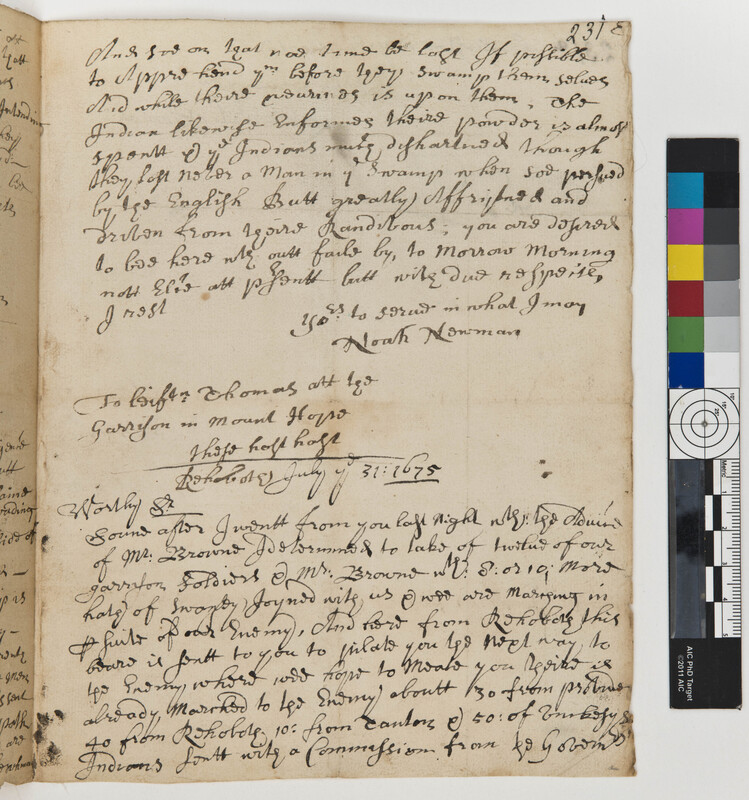 231
And soe on that noe time be lost If possible
to Apprehend ym before they swamp them selves
And while theire wearines is upon them, The
Indian likewise Enformes theire powder is almost
spentt & ye Indians much dishartned though
they lost never a Man in ye swamp when soe pursued
by the English Butt greatly Affrighted and
Driven from theire Randivous; you are desired
to bee here wth outt faile by to Morrow Morning
nott Else att psentt butt with due respects
I rest
yors to serve in what I may
Noah Newman
To Leiftn Thomas att the
Garrison in Mount Hope
these hast hast
Rehoboth July ye 31: 1675
Worthy Sr
Soune after I wentt from you last night wth: the Advice
of Mr. Browne I determined to take of twelve of our
garrison soldiers & Mr. Browne wth: 8: or 10; More
hath of Swansy Joyned with us & wee are Marching in
psuite of our Enemy, And here from Rehoboth this
beare is sentt to you to pilate you the Next way to
the Enemy where wee hope to Meate you theire is
already Marched to the Enemy aboutt 30 from providence
40 from Rehoboth 10: from Tanton & 50: of
Indians sentt with a Commission from the Governr